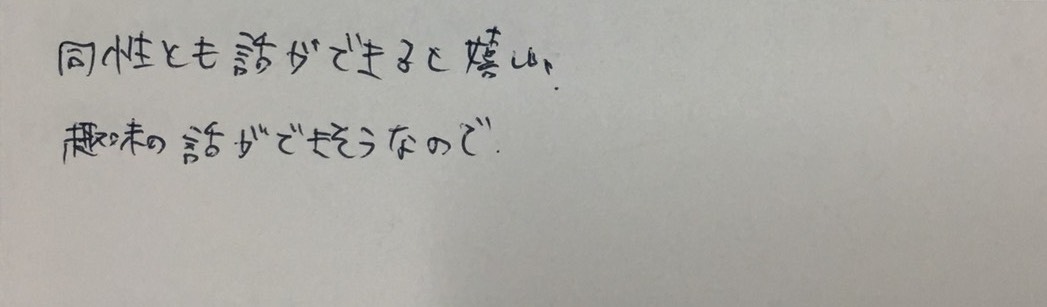 同性とも話ができると嬉しい.
趣味の話ができそうなので.